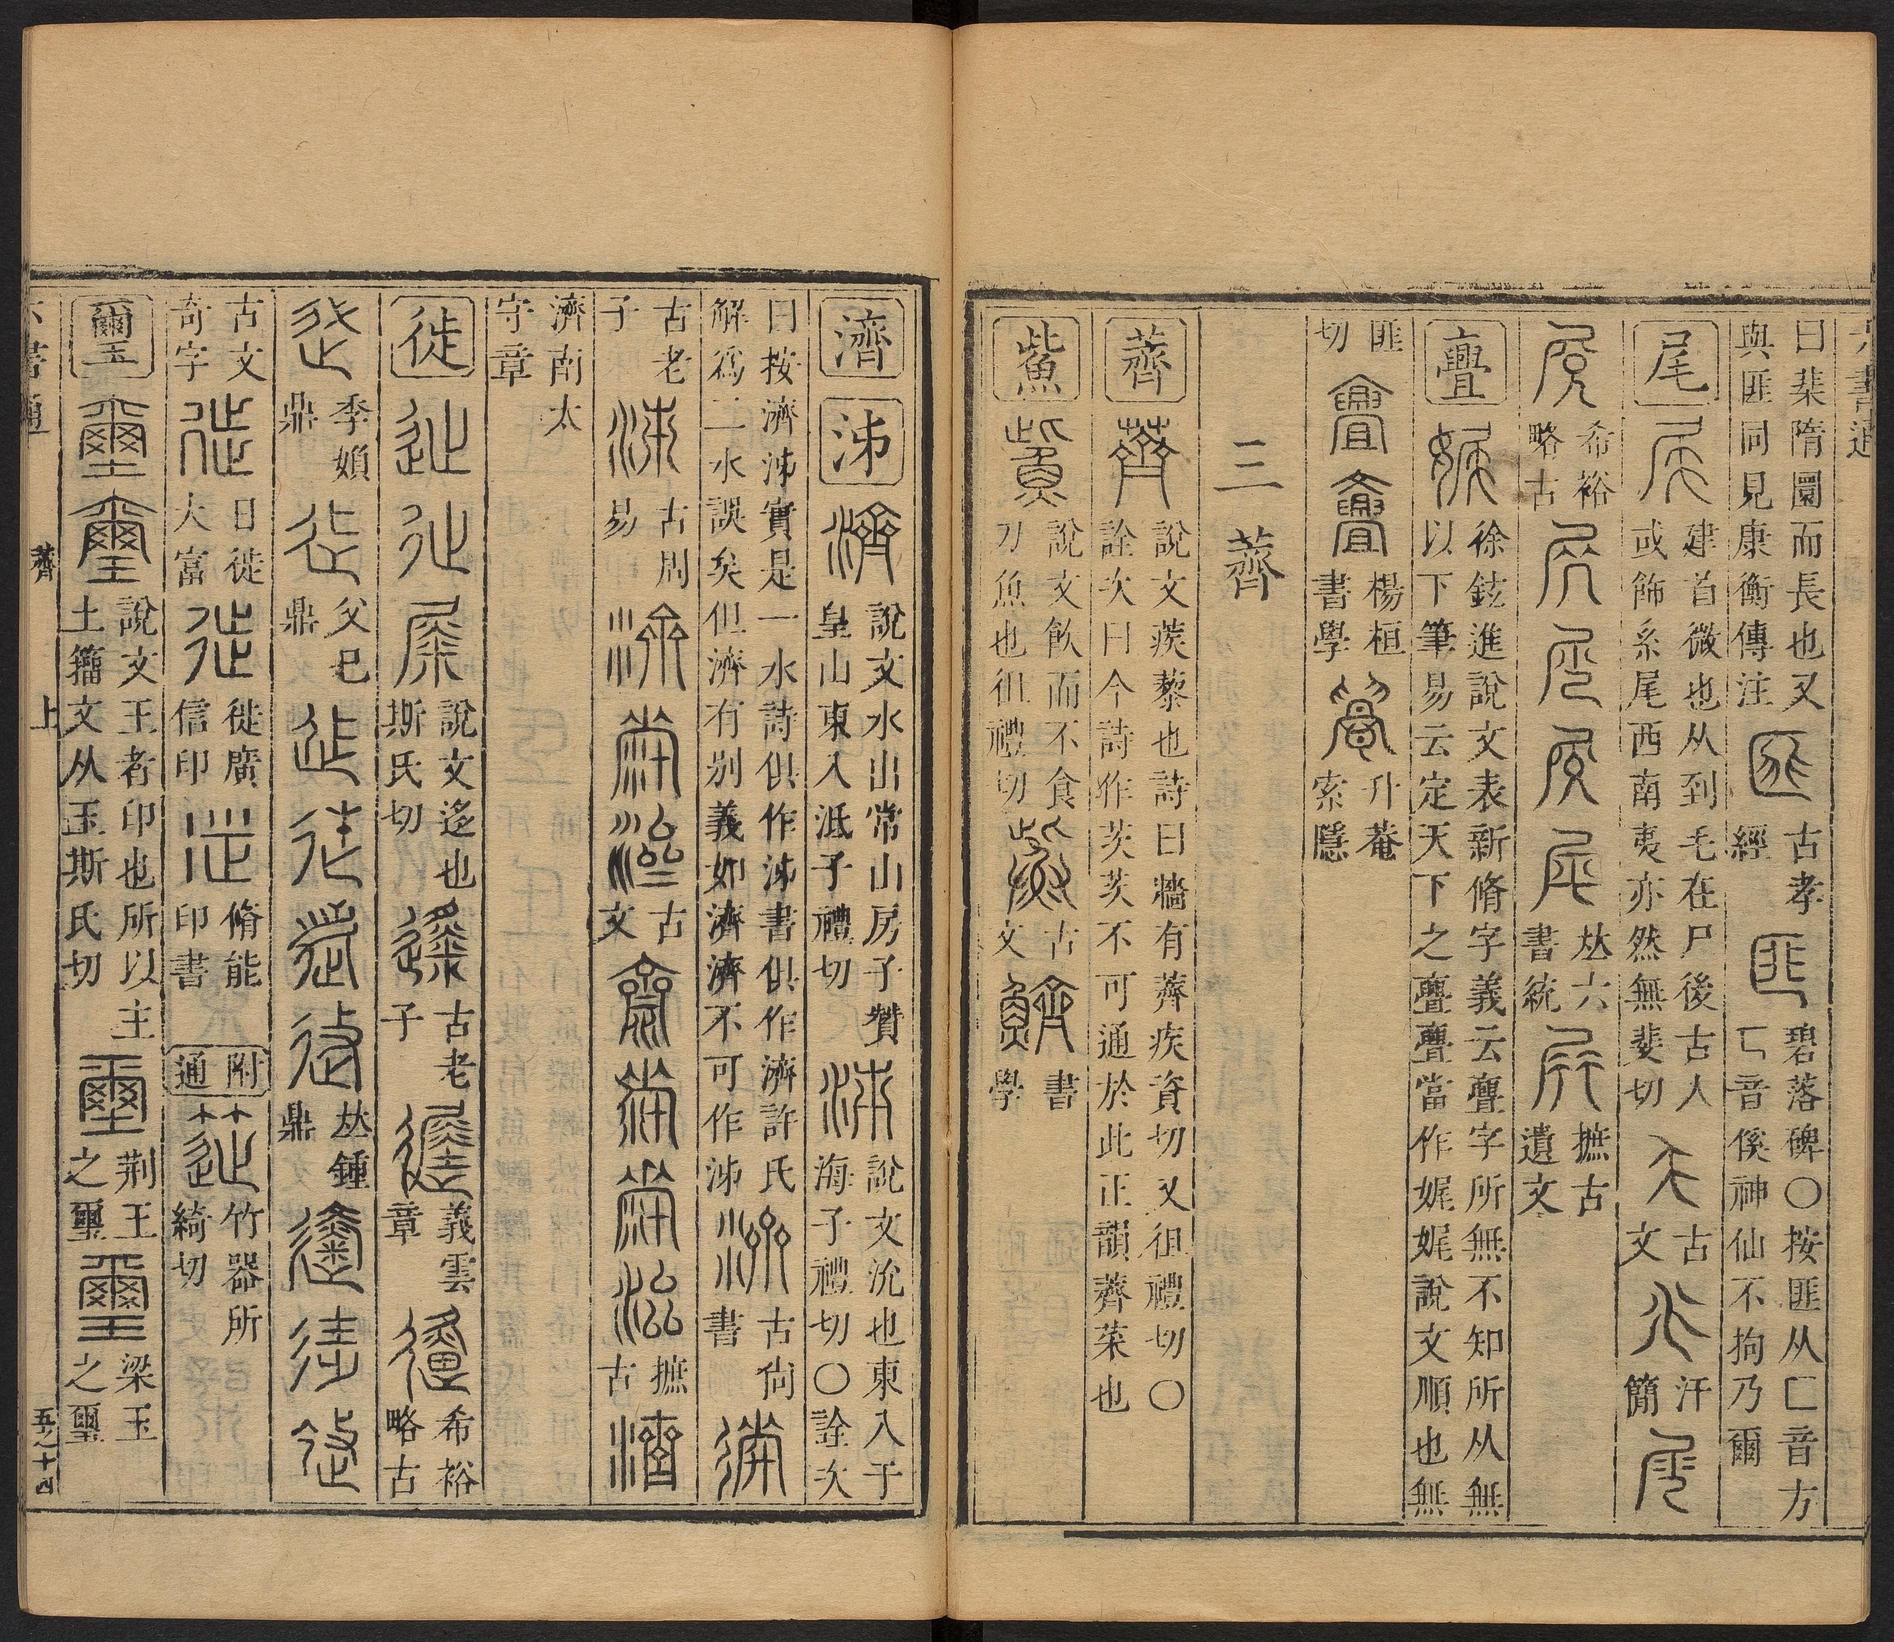 六書通
曰棐隋圜而長也又
與匪同見康衡傳注
古孝
經
碧落碑〇按匪从匚音方
匸音傒神仙不拘乃爾
尾
建首微也从到毛在尸後古人
或飾系尾西南夷亦然無斐切
古
文
汗
簡
希裕
略古
𠀤六
書統
摭古
遺文
亹
徐鉉進說文表新脩字義云亹字所無不知所从無
以下筆易云定天下之亹亹當作娓娓說文順也無
匪
切
楊桓
書學
升菴
索隱
三薺
薺
說文蒺藜也詩曰牆有薺疾資切又徂禮切〇
詮次曰今詩作茨茨不可通於此正韻薺菜也
鮆
說文飲而不食
刀魚也徂禮切
古
文
書
學
濟
泲
說文水出常山房子贊
皇山東入泜子禮切
說文沇也東入于
海子禮切〇詮次
曰按濟泲實是一水詩俱作泲書俱作濟許氏
解爲二水誤矣但濟有別義如濟濟不可作泲
古尙
書
古老
子
古周
易
古
文
摭
古
濟南太
守章
徙
說文迻也
斯氏切
古老
子
義雲
章
希裕
略古
季媍
鼎
父巳
鼎
𠀤鍾
鼎
古文
奇字
日徙
大富
徙廣
信印
脩能
印書
附
通
竹器所
綺切
璽
說文王者印也所以主
土籀文从玉斯氏切
荆王
之璽
梁王
之璽
六書通
薺
上
五之十四